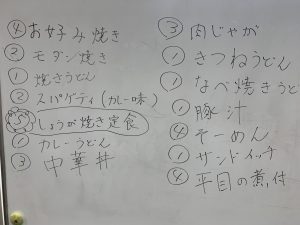 ④お好み焼き
②モダン焼き
①焼きうどん
②スパゲティ(カレー味)
しょうが焼き定食
①カレーうどん
③中華丼
③肉じゃが
①きつねうどん
①なべ焼きうど
①豚汁
④そーめん
①サンドイッチ
④平目の煮付